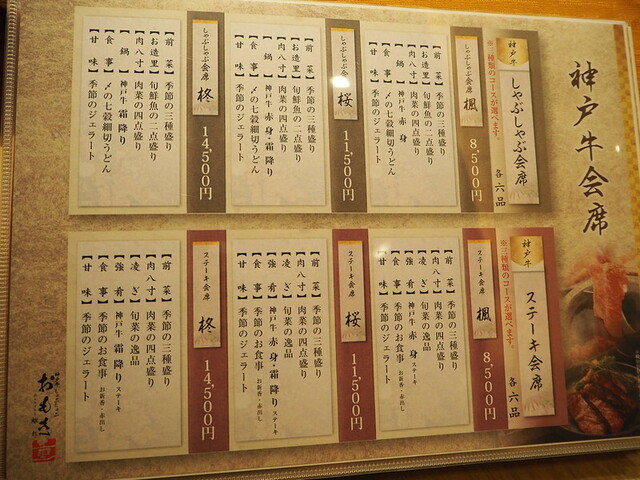 神戸牛会席
神戸牛
しゃぶしゃぶ会席
各六品
※三種類のコースが選べます。
しゃぶしゃぶ会席 楓
8,500円
【前菜】季節の三種盛り
【お造里】旬鮮魚の二点盛り
【肉八寸】肉菜の四点盛り
【鍋】神戸牛 赤身
【食事】〆の七穀細切うどん
【甘味】季節のジェラート
しゃぶしゃぶ会席 桜
11,500円
【前菜】季節の三種盛り
【お造里】旬鮮魚の二点盛り
【肉八寸】肉菜の四点盛り
【鍋】神戸牛 赤身・霜降り
【食事】〆の七穀細切うどん
【甘味】季節のジェラート
しゃぶしゃぶ会席 柊
14,500円
【前菜】季節の三種盛り
【お造里】旬鮮魚の二点盛り
【肉八寸】肉菜の四点盛り
【鍋】神戸牛 霜降り
【食事】〆の七穀細切うどん
【甘味】季節のジェラート
神戸牛
ステーキ会席
各六品
※三種類のコースが選べます。
ステーキ会席 楓
8,500円
【前菜】季節の三種盛り
【肉八寸】肉菜の四点盛り
【凌ぎ】旬菜の逸品
【強肴】神戸牛 赤身 ステーキ
【食事】季節のお食事 お新香・赤出し
【甘味】季節のジェラート
ステーキ会席 桜
11,500円
【前菜】季節の三種盛り
【肉八寸】肉菜の四点盛り
【凌ぎ】旬菜の逸品
【強肴】神戸牛 赤身・霜降り ステーキ
【食事】季節のお食事 お新香・赤出し
【甘味】季節のジェラート
ステーキ会席 柊
14,500円
【前菜】季節の三種盛り
【肉八寸】肉菜の四点盛り
【凌ぎ】旬菜の逸品
【強肴】神戸牛 霜降り ステーキ
【食事】季節のお食事 お新香・赤出し
【甘味】季節のジェラート